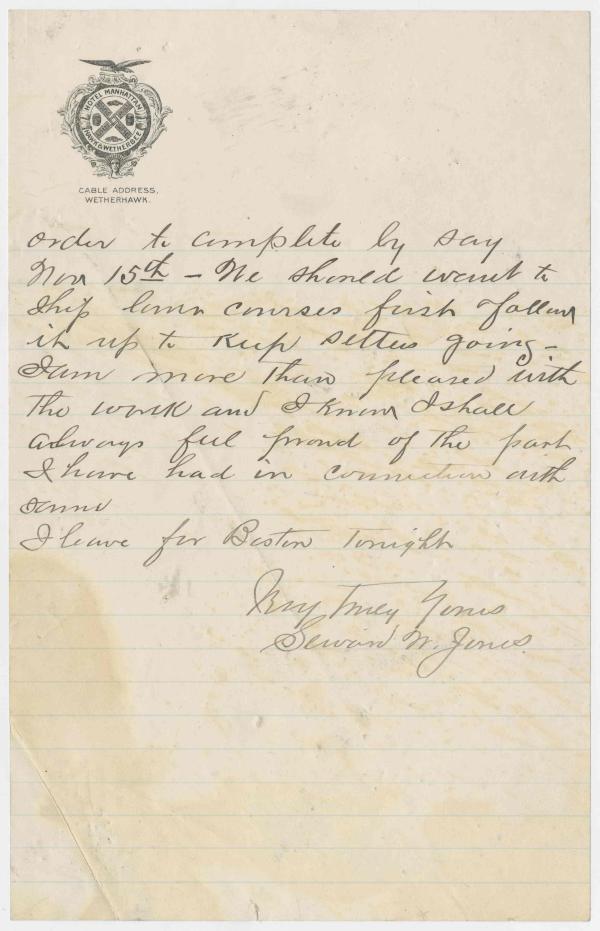 HOTEL MANHATTAN
HAWK & WETHERBEE
CABLE ADDRESS,
WETHERHAWK.
order to complete by say
Nov 15th - We should want to
ship lower courses first & follow
it up to keep setters going -
I am more than pleased with
the work and I know I shall
always feel proud of the part
I have had in connection with
same
I leave for Boston tonight
Very Truly Yours
Seward W. Jones.